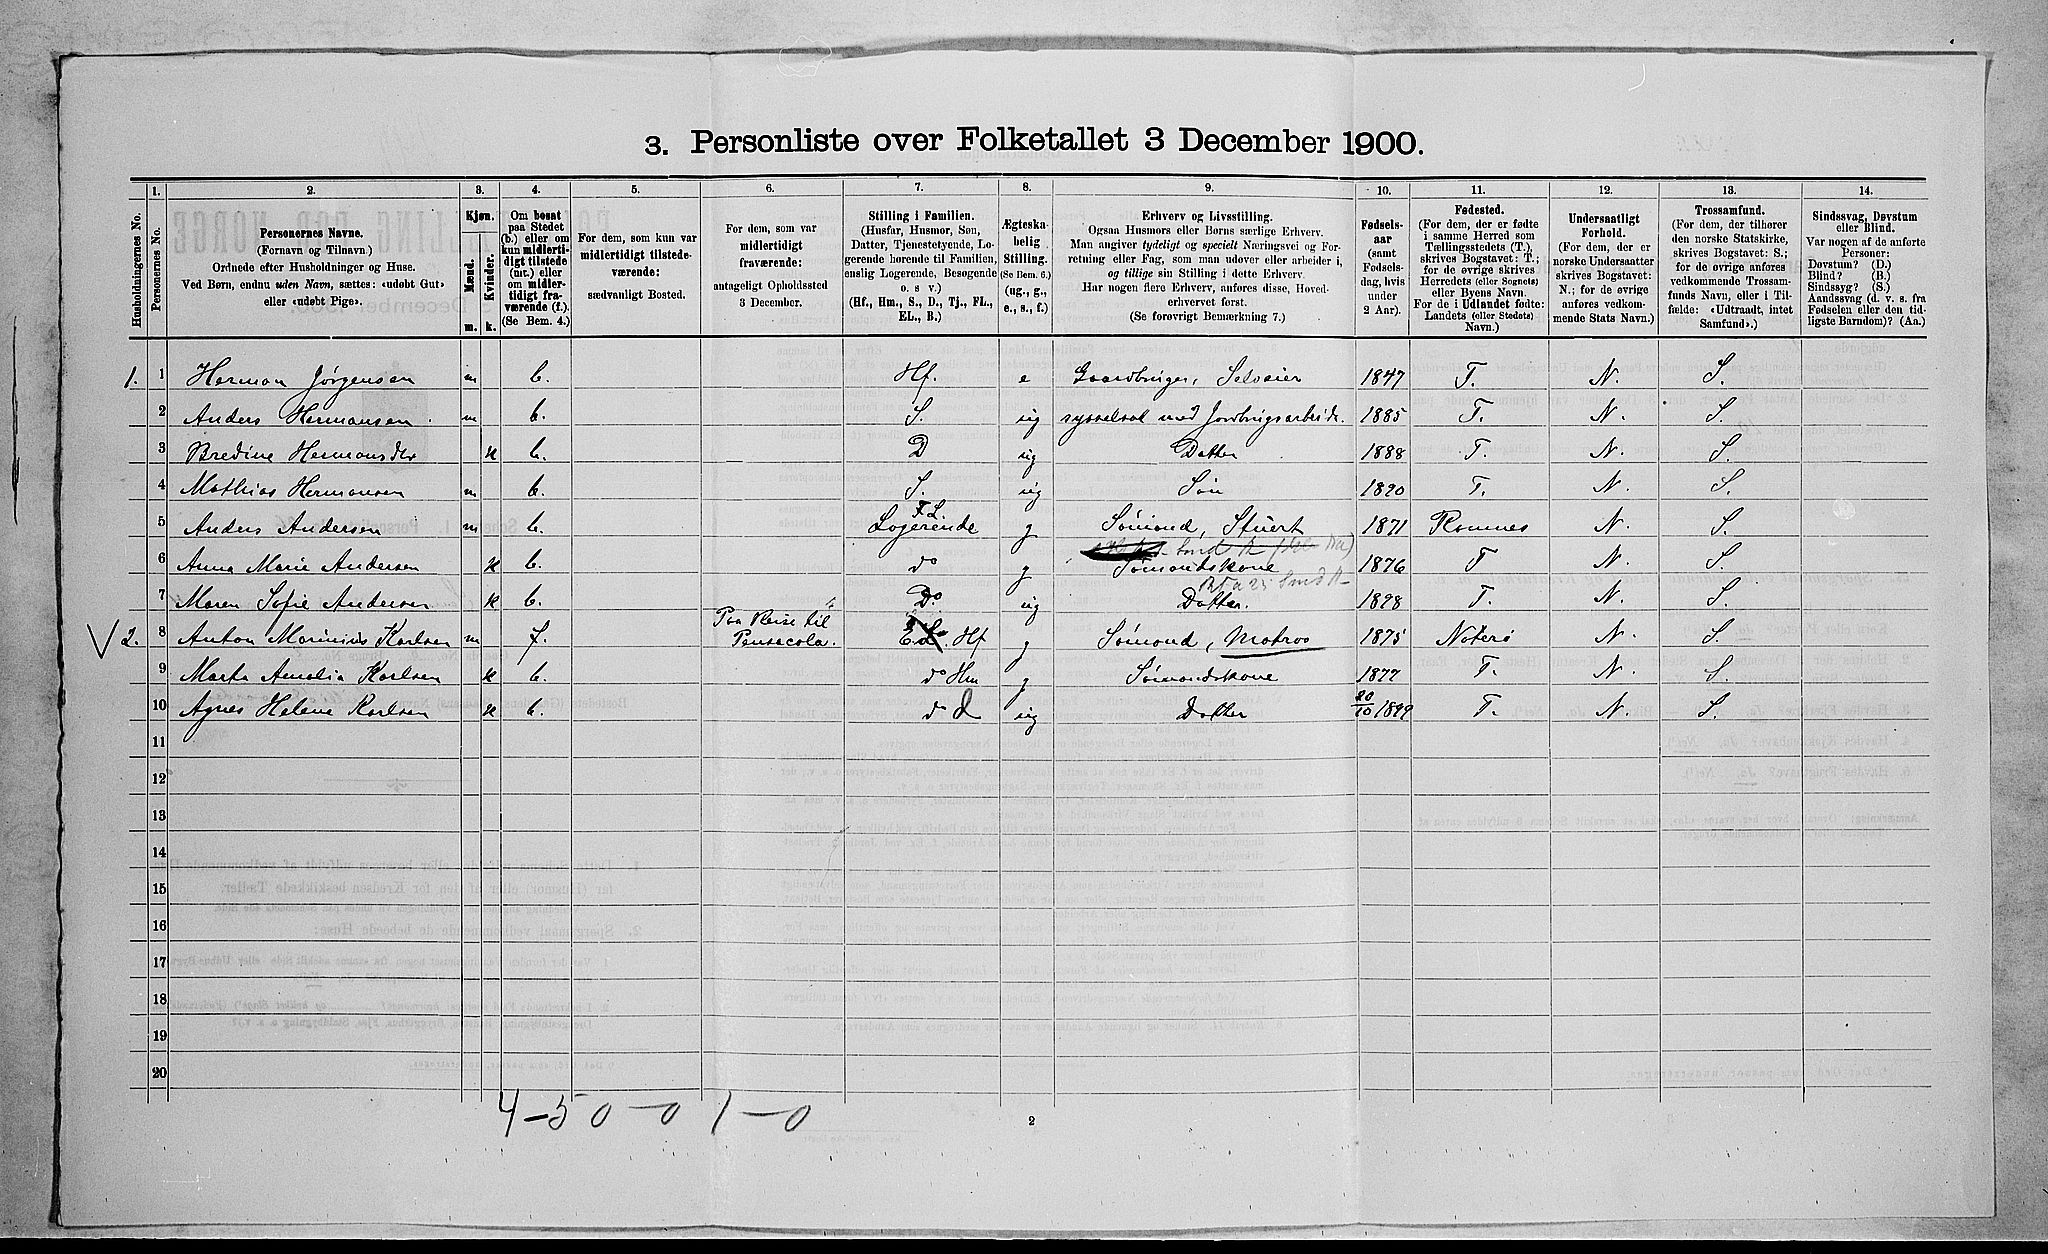 3. Personliste over Folketallet 3 December 1900.
1. 2. 3. 4. 5. 6. 7. 8. 9. 10. 11. 12. 13. 14.
Husholdningernes No.
Personernes No.
Personernes Navne.
(Fornavn og Tilnavn.)
Ordnede efter Husholdninger og Huse.
Ved Børn, endnu uden Navn, sættes: «udøbt Gut»
eller «udøbt Pige».
Kjøn.
Mænd.
Kvinder.
m. k.
Om bosat
paa Stedet
(b.) eller om
kun midlerti-
digt tilstede
(mt.) eller
om midler-
tidigt fra-
værende (f.).
(Se Bem. 4.)
For dem, som kun var
midlertidigt tilstede-
værende:
sædvanligt Bosted.
For dem, som var
midlertidigt
fraværende:
antageligt Opholdssted
3 December.
Stilling i Familien.
(Husfar, Husmor, Søn,
Datter, Tjenestetyende, Lo-
gerende hørende til Familien,
enslig Logerende, Besøgende
o. s v.)
(Hf., Hm., S., D., Tj., FL.,
EL., B.)
Ægteska-
belig
Stilling.
(Se Bem. 6.)
(ug., g.,
e., s., f.)
Erhverv og Livsstilling.
Ogsaa Husmors eller Børns særlige Erhverv.
Man angiver tydeligt og specielt Næringsvei og For-
retning eller Fag, som man udøver eller arbeider i,
og tillige sin Stilling i dette Erhverv.
Har nogen flere Erhverv, anføres disse, Hoved-
erhvervet først.
(Se forøvrigt Bemærkning 7.)
Fødsels-
aar
(samt
Fødsels-
dag, hvis
under
2 Aar).
Fødested.
(For dem, der er fødte
i samme Herred som
Tællingsstedets (T.),
skrives Bogstavet: T.;
for de øvrige skrives
Herredets (eller Sognets)
eller Byens Navn.
For de i Udlandet fødte:
Landets (eller Stedets)
Navn.)
Undersaatligt
Forhold.
(For dem, der er
norske Undersaatter
skrives Bogstavet:
N.; for de øvrige
anføres vedkom-
mende Stats Navn.)
Trossamfund.
(For dem, der tilhører
den norske Statskirke,
skrives Bogstavet: S.;
for de øvrige anføres
vedkommende Trossam-
funds Navn, eller i Til-
fælde: «Udtraadt, intet
Samfund».)
Sindssvag, Døvstum
eller Blind.
Var nogen af de anførte
Personer:
Døvstum? (D.)
Blind? (B.)
Sindssyg? (S.)
Aandssvag (d. v. s. fra
Fødselen eller den tid-
ligste Barndom)? (Aa.)
1. 1 Herman Jørgensen m b. Hf. e Gaardbruger, Selveier 1847 T. N. S.
2 Anders Hermansen. m b. S. ug sysselsat med Jordbrugsarbeide. 1885 T. N. S.
3 Bredine Hermansdtr k b. D ug Datter 1888 T. N. S.
4 Mathias Hermansen m b. S. ug Søn 1890 T. N. S.
5 Anders Andersen m b. FL Logerende g Sømand, Stuert 1871 Ramnes N. S.
6 Anna Marie Andersen k b. do g Sømandskone 1876 T N. S.
7 Maren Sofie Andersen k b. Do. ug Datter. 1898 T. N. S.
V 2. 8 Anton Marinius Karlsen m f. Paa Reise til Pensacola. E.L. Hf g Sømand, Matros 1875 Nøterø N. S.
9 Marta Amalia Karlsen k b. do Hm g Sømandskone 1877 T. N. S.
10 Agnes Helene Karlsen k b. do d ug Datter 20/10 1899 T. N. S.
11
12
13
14
15
16
17
18
19
20
4-5 0-0 1-0
2